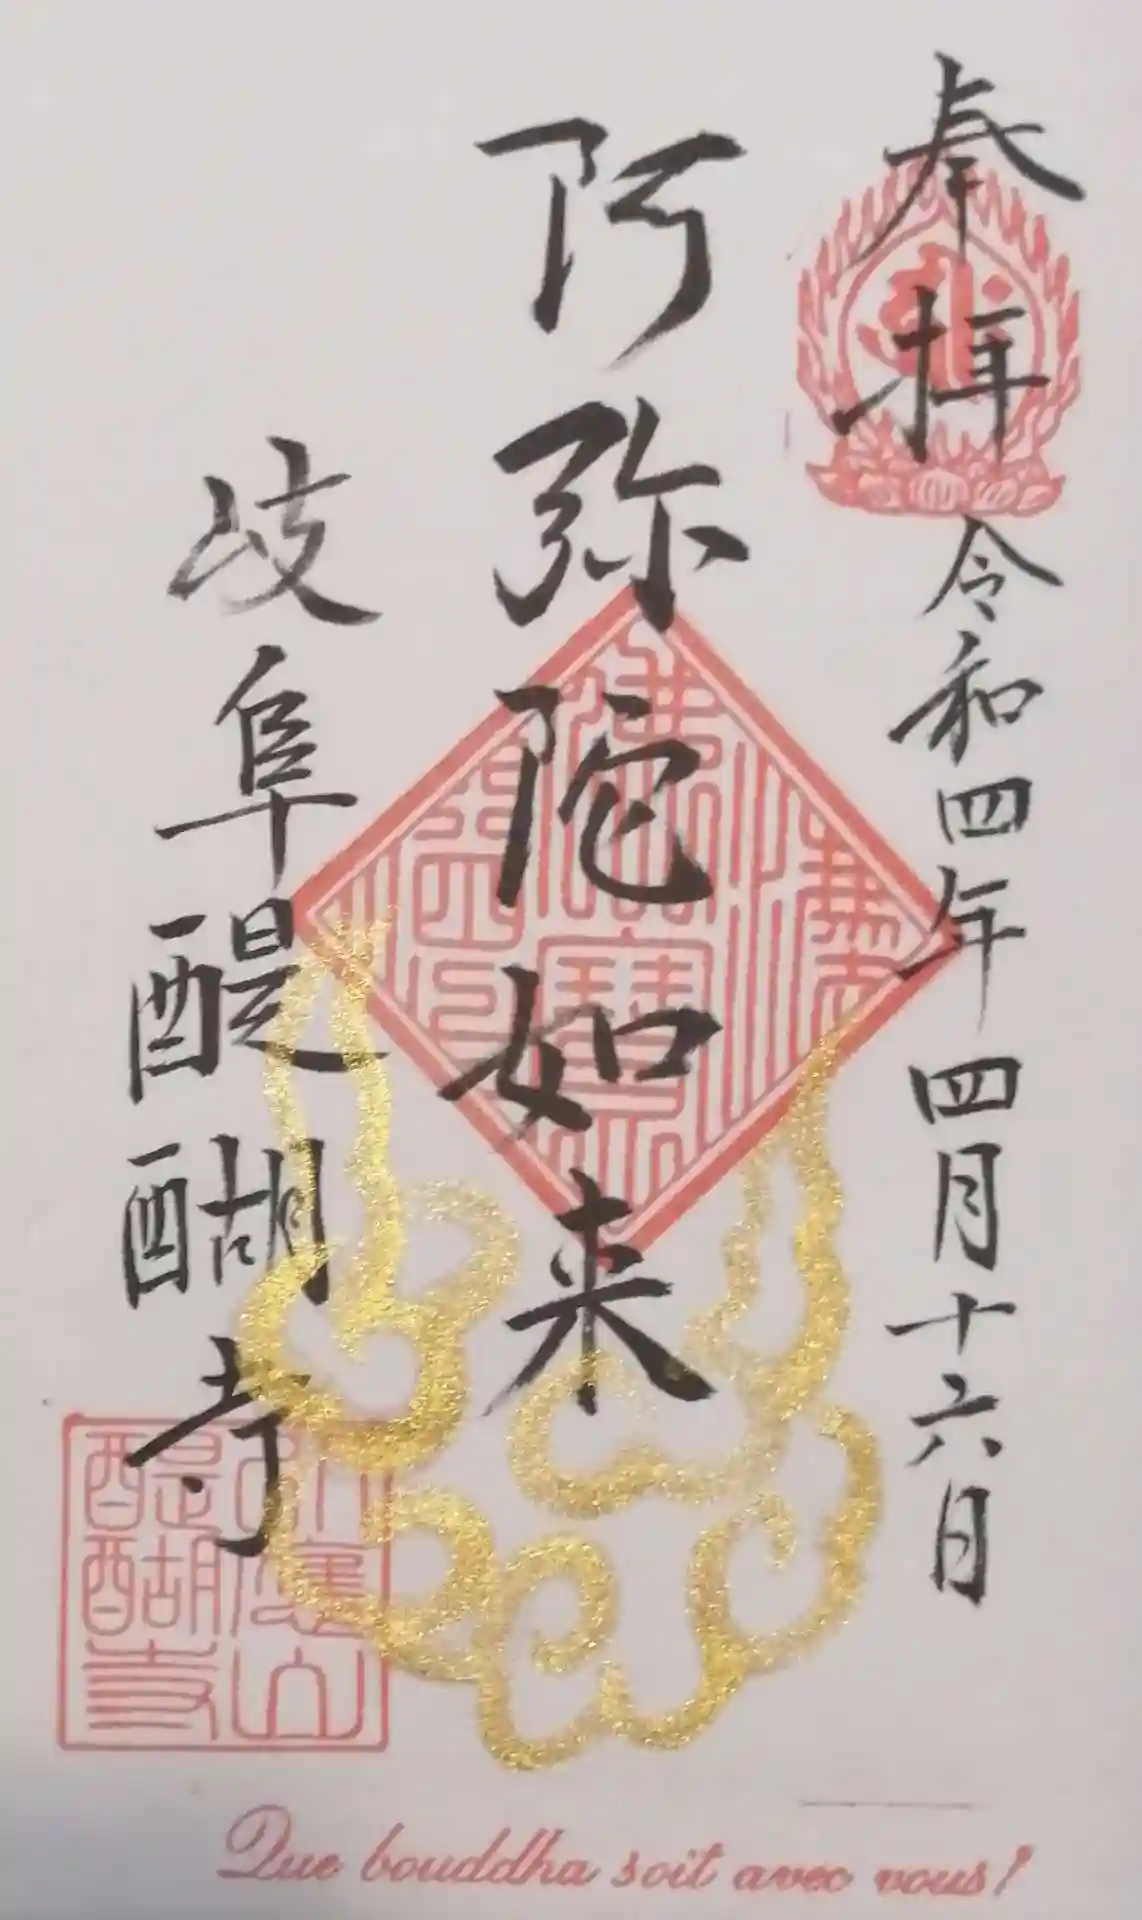 奉拝
令和四年四月十六日
阿弥陀如来
岐阜醍醐寺
佛法僧寶
醍醐寺
Que bouddha soit avec vous!